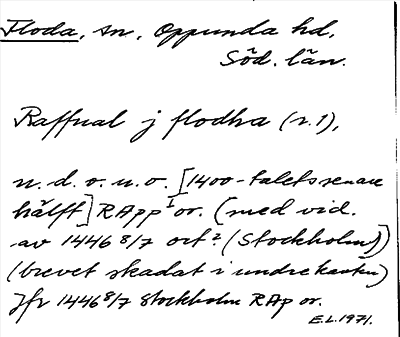 Floda, sn, Oppunda hd,
Söd. län.
Raffual j flodha (r. 1),
u. d. o. u. o. [1400-talets senare
hälft] RApp¹ or. (med vid.
av 1446 8/7 ort² (Stockholm))
(brevet skadat i undre kanten)
Jfr 1446 8/7 Stockholm RAp or.
E.L. 1971.